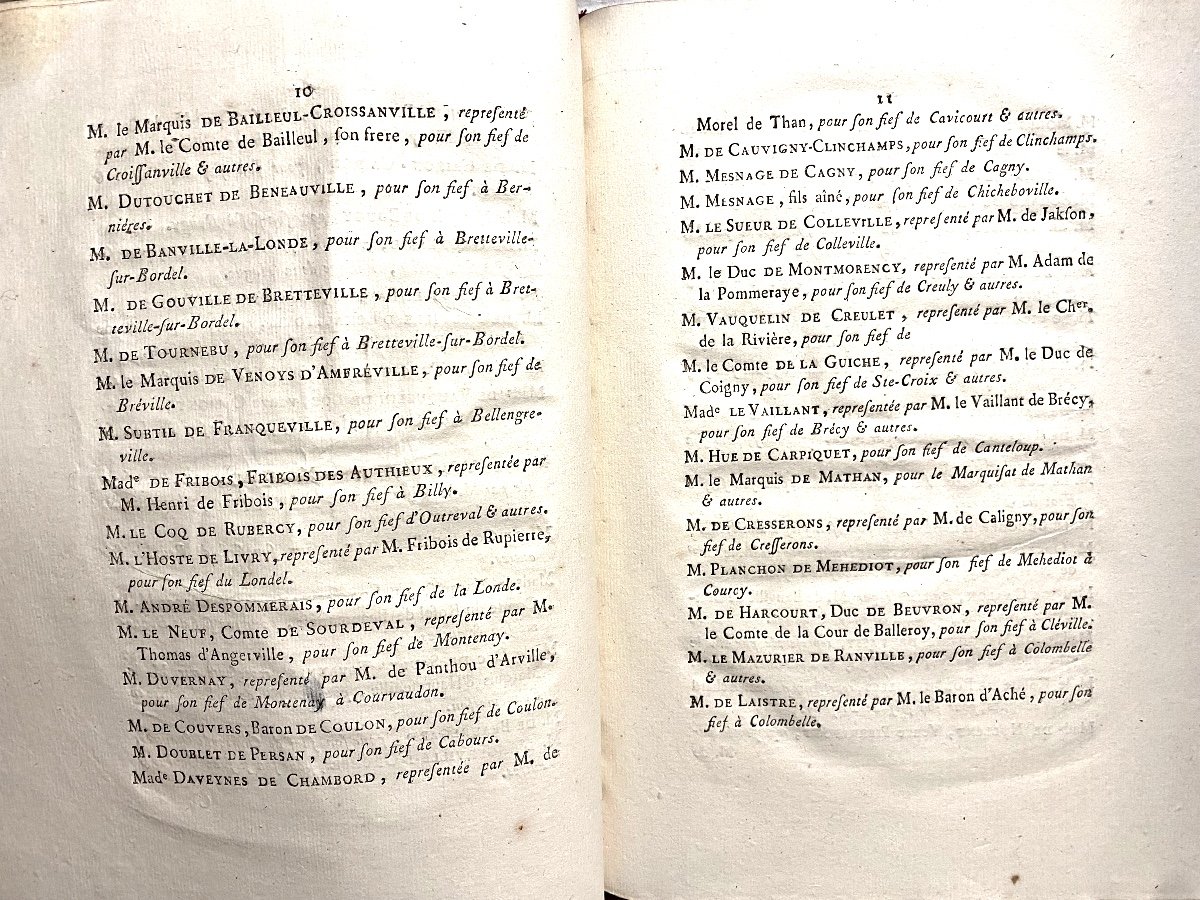 10
M. le Marquis DE BAILLEUL-CROISSANVILLE, repreſenté
par M. le Comte de Bailleul, ſon frere, pour ſon fief de
Croiſſanville & autres.
M. DUTOUCHET DE BENEAUVILLE, pour ſon fief à Ber-
niéres.
M. DE BANVILLE-LA-LONDE, pour ſon fief à Bretteville-
ſur-Bordel.
M. DE GOUVILLE DE BRETTEVILLE, pour ſon fief à Bret-
teville-ſur-Bordel.
M. DE TOURNEBU, pour ſon fief à Bretteville-ſur-Bordel.
M. le Marquis DE VENOYS D'AMFRÉVILLE, pour ſon fief de
Bréville.
M. SUBTIL DE FRANQUEVILLE, pour ſon fief à Bellengre-
ville.
Made DE FRIBOIS, FRIBOIS DES AUTHIEUX, repreſentée par
M. Henri de Fribois, pour ſon fief à Billy.
M. LE COQ DE RUBERCY, pour ſon fief d'Outreval & autres.
M. L'HOSTE DE LIVRY, repreſenté par M. Fribois de Rupierre,
pour ſon fief du Londel.
M. ANDRÉ DESPOMMERAIS, pour ſon fief de la Londe.
M. LE NEUF, Comte DE SOURDEVAL, repreſenté par M.
Thomas d'Angerville, pour ſon fief de Montenay.
M. DUVERNAY, repreſenté par M. de Panthou d'Arville,
pour ſon fief de Montenay à Courvaudon.
M. DE COUVERS, Baron DE COULON, pour ſon fief de Coulon.
M. DOUBLET DE PERSAN, pour ſon fief de Cabours.
Made DAVEYNES DE CHAMBORD, repreſentée par M. de
11
Morel de Than, pour ſon fief de Cavicourt & autres.
M. DE CAUVIGNY-CLINCHAMPS, pour ſon fief de Clinchamps.
M. MESNAGE DE CAGNY, pour ſon fief de Cagny.
M. MESNAGE, fils aîné, pour ſon fief de Chicheboville.
M. LE SUEUR DE COLLEVILLE, repreſenté par M. de Jakſon,
pour ſon fief de Colleville.
M. le Duc DE MONTMORENCY, repreſenté par M. Adam de
la Pommeraye, pour ſon fief de Creuly & autres.
M. VAUQUELIN DE CREULET, repreſenté par M. le Cher.
de la Rivière, pour ſon fief de
M. le Comte DE LA GUICHE, repreſenté par M. le Duc de
Coigny, pour ſon fief de Ste-Croix & autres.
Made LE VAILLANT, repreſentée par M. le Vaillant de Brécy,
pour ſon fief de Brécy & autres.
M. HUE DE CARPIQUET, pour ſon fief de Canteloup.
M. le Marquis DE MATHAN, pour le Marquiſat de Mathan
& autres.
M. DE CRESSERONS, repreſenté par M. de Caligny, pour ſon
fief de Creſſerons.
M. PLANCHON DE MEHEDIOT, pour ſon fief de Mehediot à
Courcy.
M. DE HARCOURT, DUC DE BEUVRON, repreſenté par M.
le Comte de la Cour de Balleroy, pour ſon fief à Cléville.
M. LE MAZURIER DE RANVILLE, pour ſon fief à Colombelle
& autres.
M. DE LAISTRE, repreſenté par M. le Baron d'Aché, pour ſon
fief à Colombelle.